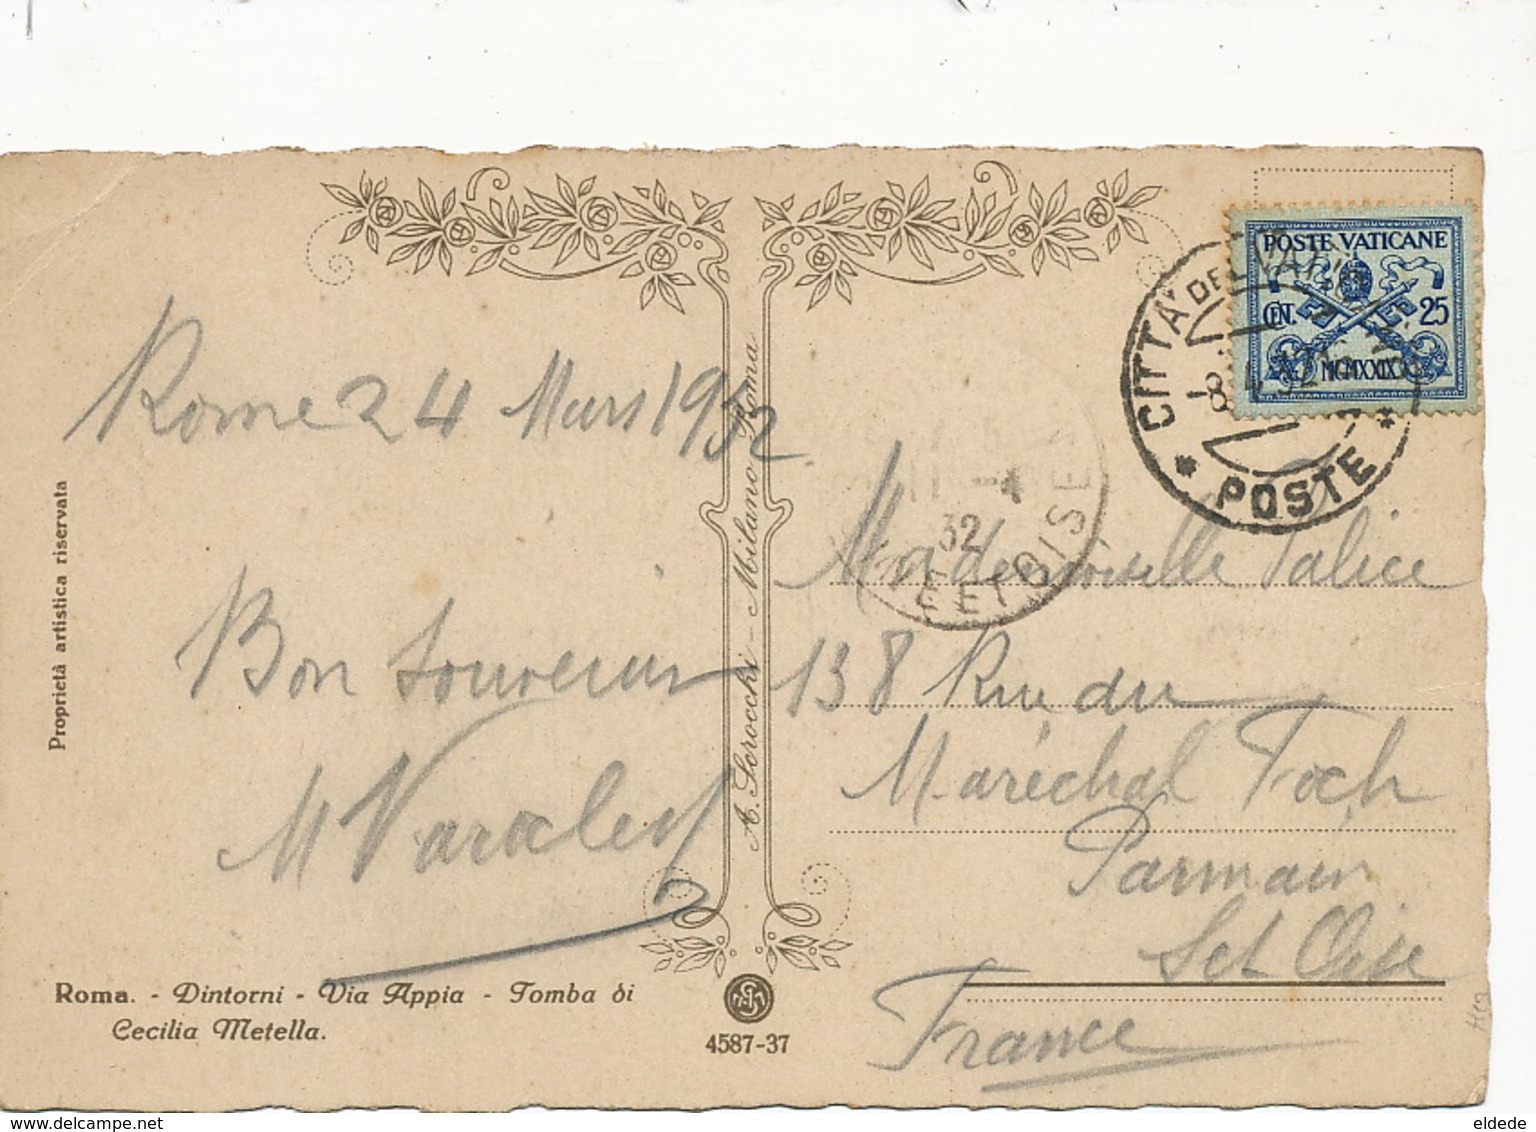 POSTE VATICANE
CENT. 25
MCMXXIX
CITTÀ DEL VATICANO
-8.
POSTE
4
32
SEINE ET OISE
Rome 24 Mars 1932
Bon Souvenir
Mademoiselle Palice
138 Rue du
Maréchal Foch
Parmain
S et Oise
France
Proprietà artistica riservata
A. Scrocchi - Milano-Roma
Roma. - Dintorni - Via Appia - Tomba di
Cecilia Metella.
4587-37
www.delcampe.net
eldede